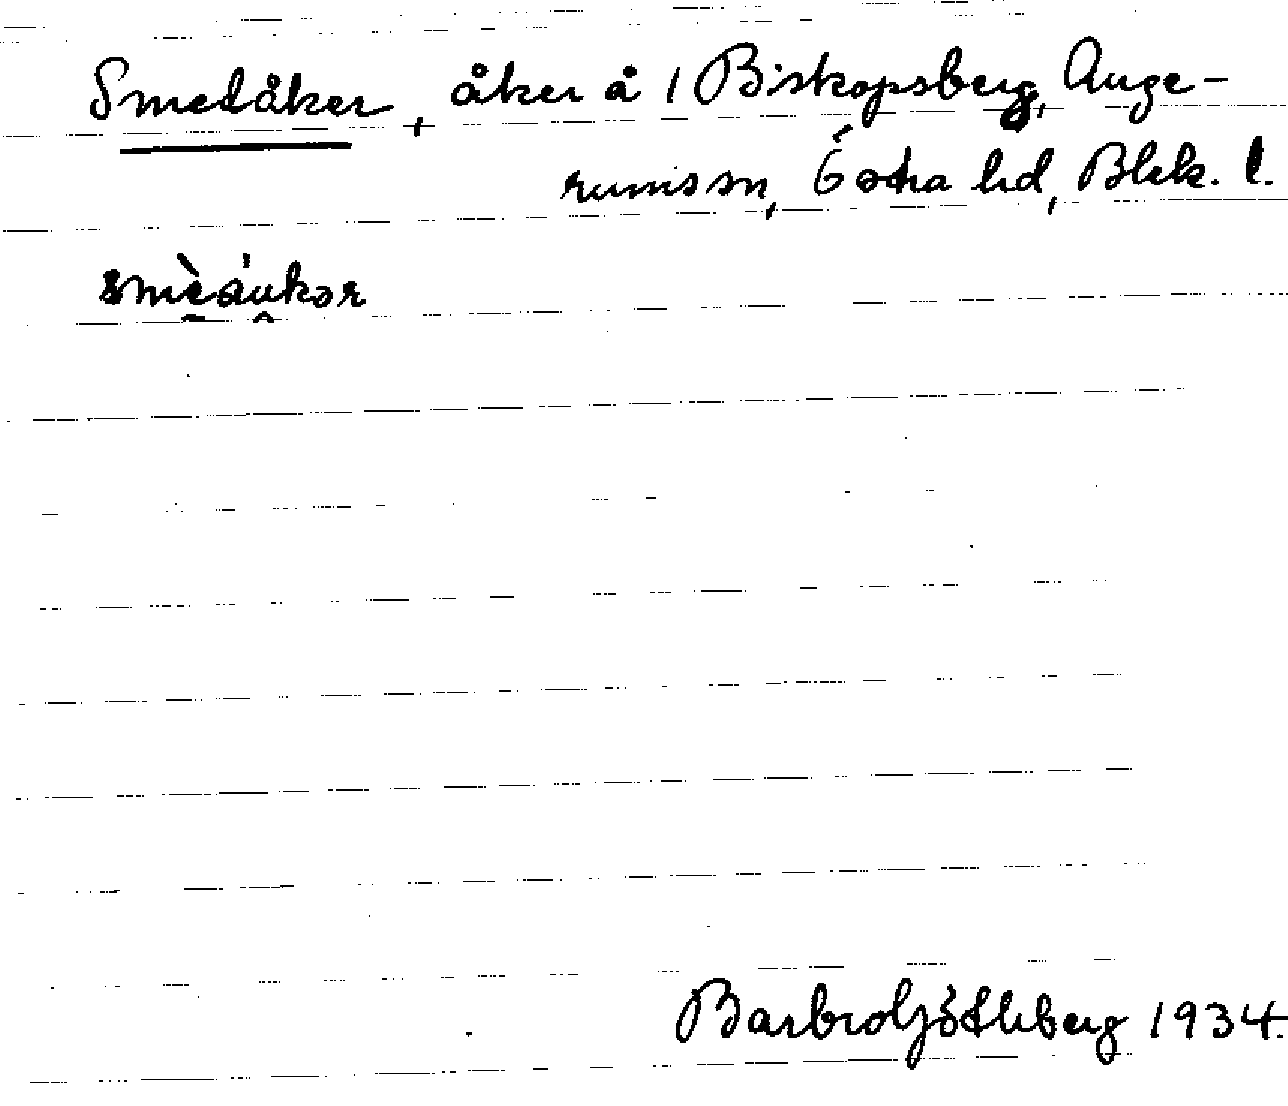 Smedåker, åker å 1 Biskopsberg, Auge-
rums sn, Östra hd, Blek. l.
Barbro Götherberg 1934.